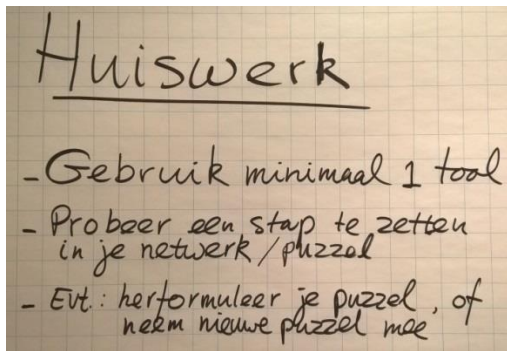 Huiswerk
- Gebruik minimaal 1 tool
- Probeer een stap te zetten
in je netwerk/puzzel
- Evt.: herformuleer je puzzel, of
neem nieuwe puzzel mee